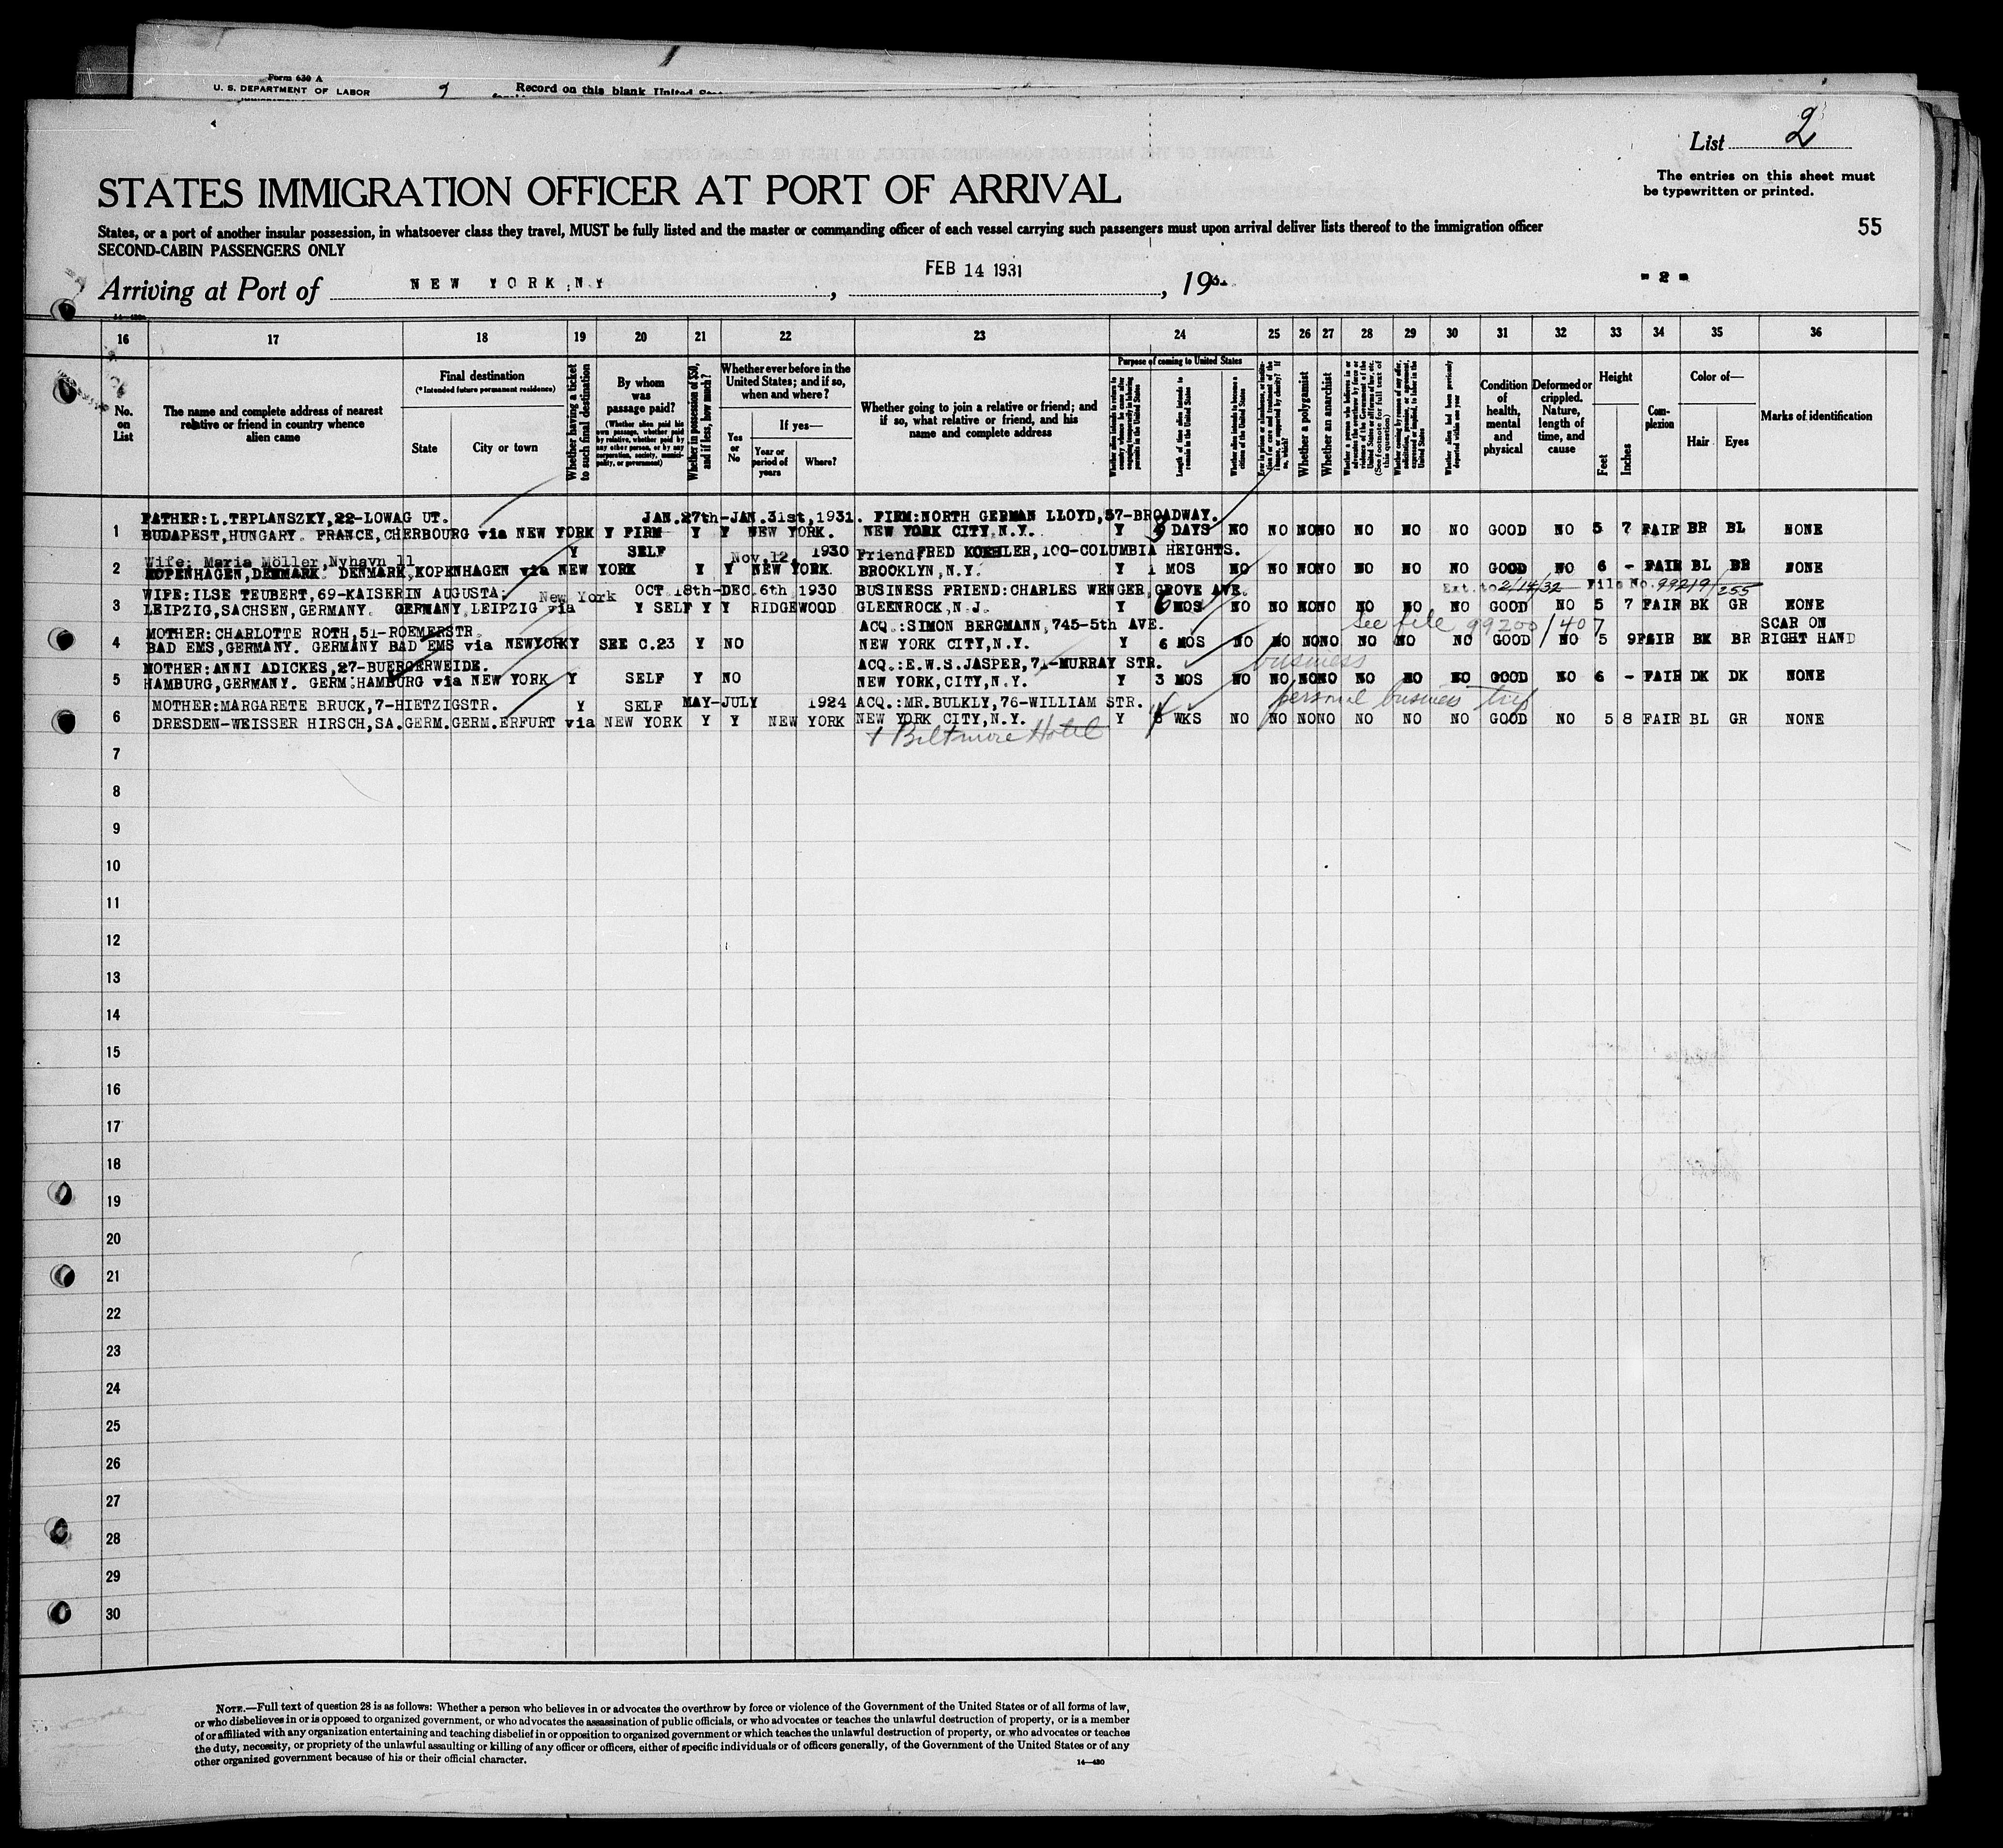 Form 630 A
U. S. DEPARTMENT OF LABOR
Record on this blank United
List 2
The entries on this sheet must
be typewritten or printed.
STATES IMMIGRATION OFFICER AT PORT OF ARRIVAL
55
States, or a port of another insular possession, in whatsoever class they travel, MUST be fully listed and the master or commanding officer of each vessel carrying such passengers must upon arrival deliver lists thereof to the immigration officer
SECOND-CABIN PASSENGERS ONLY
Arriving at Port of NEW YORK NY, FEB 14 1931, 19
- 2 -
16 17 18 19 20 21 22 23 24 25 26 27 28 29 30 31 32 33 34 35 36
No. on List
The name and complete address of nearest relative or friend in country whence alien came
Final destination
(*Intended future permanent residence)
State
City or town
Whether having a ticket to such final destination
By whom was passage paid?
(Whether alien paid his own passage, whether paid by relative, whether paid by any other person, or by any corporation, society, municipality, or government)
Whether in possession of $50, and if less, how much?
Whether ever before in the United States; and if so, when and where?
Yes or No
If yes—
Year or period of years
Where?
Whether going to join a relative or friend; and if so, what relative or friend, and his name and complete address
Purpose of coming to United States
Length of time alien intends to remain in the United States
Whether alien intends to become a citizen of the United States
Whether a polygamist
Whether an anarchist
Whether alien had been previously deported within one year
Condition of health, mental and physical
Deformed or crippled. Nature, length of time, and cause
Height
Feet
Inches
Complexion
Color of—
Hair
Eyes
Marks of identification
FATHER:L.TEPLANSZKY,22-LOWAG UT. JAN.27th-JAN.31st,1931. FIRM:NORTH GERMAN LLOYD,57-BROADWAY.
1 BUDAPEST,HUNGARY. FRANCE,CHERBOURG via NEW YORK Y FIRM Y Y NEW YORK. NEW YORK CITY,N.Y. Y 9 DAYS NO NO NO NO NO NO NO GOOD NO 5 7 FAIR BR BL NONE
Wife: Maria Möller,Nyhavn 11 Y SELF Nov,12, 1930 Friend FRED KOEHLER,100-COLUMBIA HEIGHTS.
2 KOPENHAGEN,DENMARK. DENMARK,KOPENHAGEN via NEW YORK Y Y NEW YORK BROOKLYN,N.Y. Y 1 MOS NO NO NO NO NO NO NO GOOD NO 6 - FAIR BL BR NONE
WIFE:ILSE TEUBERT,69-KAISERIN AUGUSTA: New York OCT 18th-DEC.6th 1930 BUSINESS FRIEND:CHARLES WENGER,GROVE AVE. Ext. to 2/14/32 File No. 99219/255
3 LEIPZIG,SACHSEN,GERMANY. GERMANY LEIPZIG via Y SELF Y Y RIDGEWOOD GLEENROCK,N.J. Y 6 MOS NO NO NO NO NO NO NO GOOD NO 5 7 FAIR BK GR NONE
MOTHER:CHARLOTTE ROTH,51-ROEMERSTR. ACQ.:SIMON BERGMANN,745-5th AVE. See file 99200/407 SCAR ON
4 BAD EMS,GERMANY. GERMANY BAD EMS via NEWYORK Y SEE C.23 Y NO NEW YORK CITY,N.Y. Y 6 MOS NO NO NO NO NO NO NO GOOD NO 5 9 FAIR BK BR RIGHT HAND
MOTHER:ANNI ADICKES,27-BUERGERWEIDE. ACQ.:E.W.S.JASPER,71-MURRAY STR. business
5 HAMBURG,GERMANY. GERM:HAMBURG via NEW YORK Y SELF Y NO NEW YORK,CITY,N.Y. Y 3 MOS NO NO NO NO NO NO NO GOOD NO 6 - FAIR DK DK NONE
MOTHER:MARGARETE BRUCK,7-HIETZIGSTR. Y SELF MAY-JULY 1924 ACQ.:MR.BULKLY,76-WILLIAM STR. personal business trip
6 DRESDEN-WEISSER HIRSCH,SA.GERM.GERM.ERFURT via NEW YORK Y Y NEW YORK NEW YORK CITY,N.Y. Y WKS NO NO NO NO NO NO NO GOOD NO 5 8 FAIR BL GR NONE
+ Biltmore Hotel
7
8
9
10
11
12
13
14
15
16
17
18
19
20
21
22
23
24
25
26
27
28
29
30
NOTE.—Full text of question 28 is as follows: Whether a person who believes in or advocates the overthrow by force or violence of the Government of the United States or of all forms of law,
or who disbelieves in or is opposed to organized government, or who advocates the assassination of public officials, or who advocates or teaches the unlawful destruction of property, or is a member
of or affiliated with any organization entertaining and teaching disbelief in or opposition to organized government or which teaches the unlawful destruction of property, or who advocates or teaches
the duty, necessity, or propriety of the unlawful assaulting or killing of any officer or officers, either of specific individuals or of officers generally, of the Government of the United States or of any
other organized government because of his or their official character.
14—430